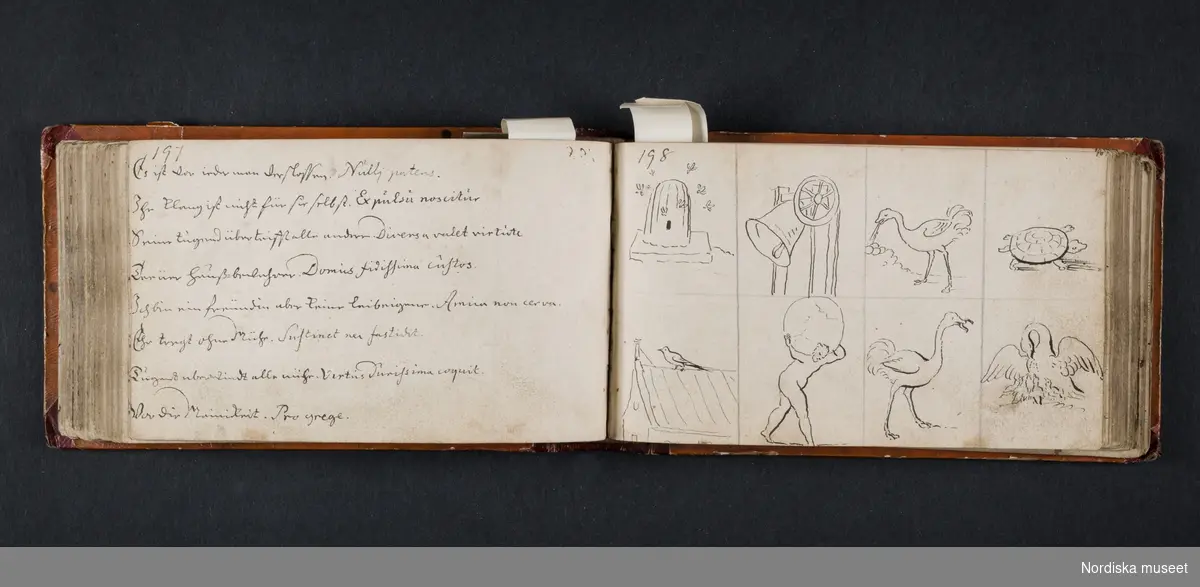 197
Es ist vor iederman verschlossen. Nulli patens.
Ihr klang ist nicht für sie selbst. Expulsu noscitur
Seine tugend übertrifft alle andere. Diversa valet virtute
Treüer Haüsbewahrer. Domus fidissima custos.
Ich bin ein freündin aber keine leibeigene. Amica non serva.
Er tregt ohne Mühe. Sustinet nec fatiscit.
Tugend überwindt alle mühe. Virtus durissima coquit.
Vor die Gemeinheit. Pro grege.
198
Nordiska museet